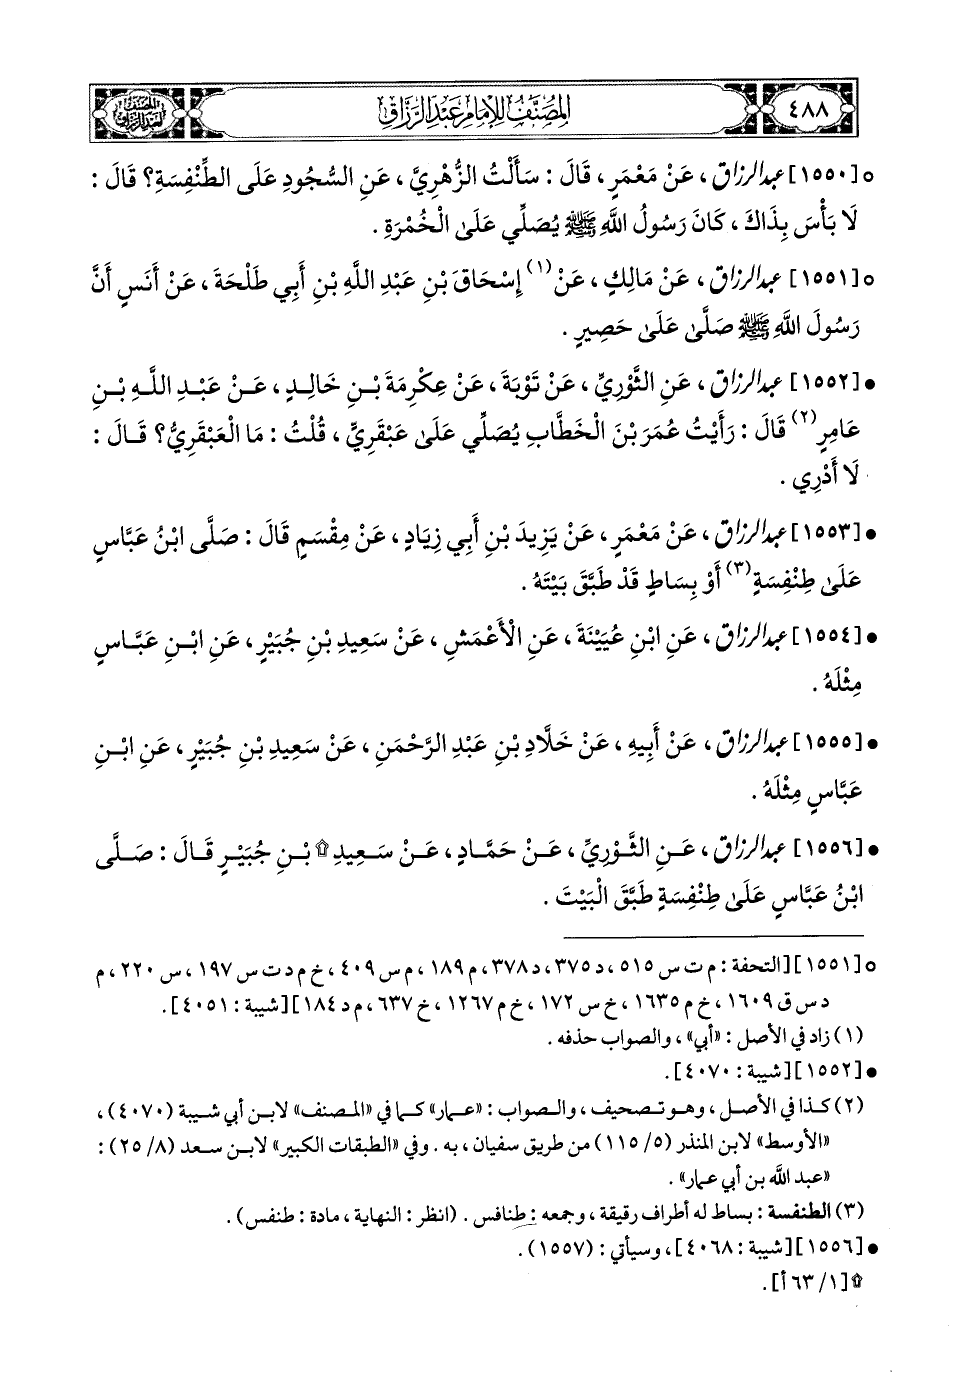 ٤٨٨
المصنف للإمام عبد الرزاق
المصنف لعبد الرزاق
○ [١٥٥٠] عبد الرزاق، عَنْ مَعْمَرٍ، قَالَ: سَأَلْتُ الزُّهْرِيَّ، عَنِ السُّجُودِ عَلَى الطِّنْفِسَةِ؟ قَالَ:
لَا بَأْسَ بِذَاكَ، كَانَ رَسُولُ اللَّهِ ﷺ يُصَلِّي عَلَى الْخُمْرَةِ.
○ [١٥٥١] عبد الرزاق، عَنْ مَالِكٍ، عَنْ (١) إِسْحَاقَ بْنِ عَبْدِ اللَّهِ بْنِ أَبِي طَلْحَةَ، عَنْ أَنَسٍ أَنَّ
رَسُولَ اللَّهِ ﷺ صَلَّى عَلَى حَصِيرٍ.
● [١٥٥٢] عبد الرزاق، عَنِ الثَّوْرِيِّ، عَنْ تَوْبَةَ، عَنْ عِكْرِمَةَ بْنِ خَالِدٍ، عَنْ عَبْدِ اللَّهِ بْنِ
عَامِرٍ (٢) قَالَ: رَأَيْتُ عُمَرَ بْنَ الْخَطَّابِ يُصَلِّي عَلَى عَبْقَرِيٍّ، قُلْتُ: مَا الْعَبْقَرِيُّ؟ قَالَ:
لَا أَدْرِي.
● [١٥٥٣] عبد الرزاق، عَنْ مَعْمَرٍ، عَنْ يَزِيدَ بْنِ أَبِي زِيَادٍ، عَنْ مِقْسَمٍ قَالَ: صَلَّى ابْنُ عَبَّاسٍ
عَلَى طِنْفِسَةٍ (٣) أَوْ بِسَاطٍ قَدْ طَبَّقَ بَيْتَهُ.
● [١٥٥٤] عبد الرزاق، عَنِ ابْنِ عُيَيْنَةَ، عَنِ الْأَعْمَشِ، عَنْ سَعِيدِ بْنِ جُبَيْرٍ، عَنِ ابْنِ عَبَّاسٍ
مِثْلَهُ.
● [١٥٥٥] عبد الرزاق، عَنْ أَبِيهِ، عَنْ خَلَّادِ بْنِ عَبْدِ الرَّحْمَنِ، عَنْ سَعِيدِ بْنِ جُبَيْرٍ، عَنِ ابْنِ
عَبَّاسٍ مِثْلَهُ.
● [١٥٥٦] عبد الرزاق، عَنِ الثَّوْرِيِّ، عَنْ حَمَّادٍ، عَنْ سَعِيدِ ۩ بْنِ جُبَيْرٍ قَالَ: صَلَّى
ابْنُ عَبَّاسٍ عَلَى طِنْفِسَةٍ طَبَّقَ الْبَيْتَ.
○ [١٥٥١] [التحفة: م ت س ٥١٥، د ٣٧٥، د ٣٧٨، م ١٨٩، م س ٤٠٩، خ م د ت س ١٩٧، س ٢٢٠، م
د س ق ١٦٠٩، خ م ١٦٣٥، خ س ١٧٢، خ م ١٢٦٧، خ ٦٣٧، م د ١٨٤] [شيبة: ٤٠٥١].
(١) زاد في الأصل: «أبي»، والصواب حذفه.
● [١٥٥٢] [شيبة: ٤٠٧٠].
(٢) كذا في الأصل، وهو تصحيف، والصواب: «عمار» كما في «المصنف» لابن أبي شيبة (٤٠٧٠)،
«الأوسط» لابن المنذر (٥/ ١١٥) من طريق سفيان، به. وفي «الطبقات الكبير» لابن سعد (٨/ ٢٥):
«عبد الله بن أبي عمار».
(٣) الطنفسة: بساط له أطراف رقيقة، وجمعه: طنافس. (انظر: النهاية، مادة: طنفس).
● [١٥٥٦] [شيبة: ٤٠٦٨]، وسيأتي: (١٥٥٧).
۩ [١/ ٦٣ أ].